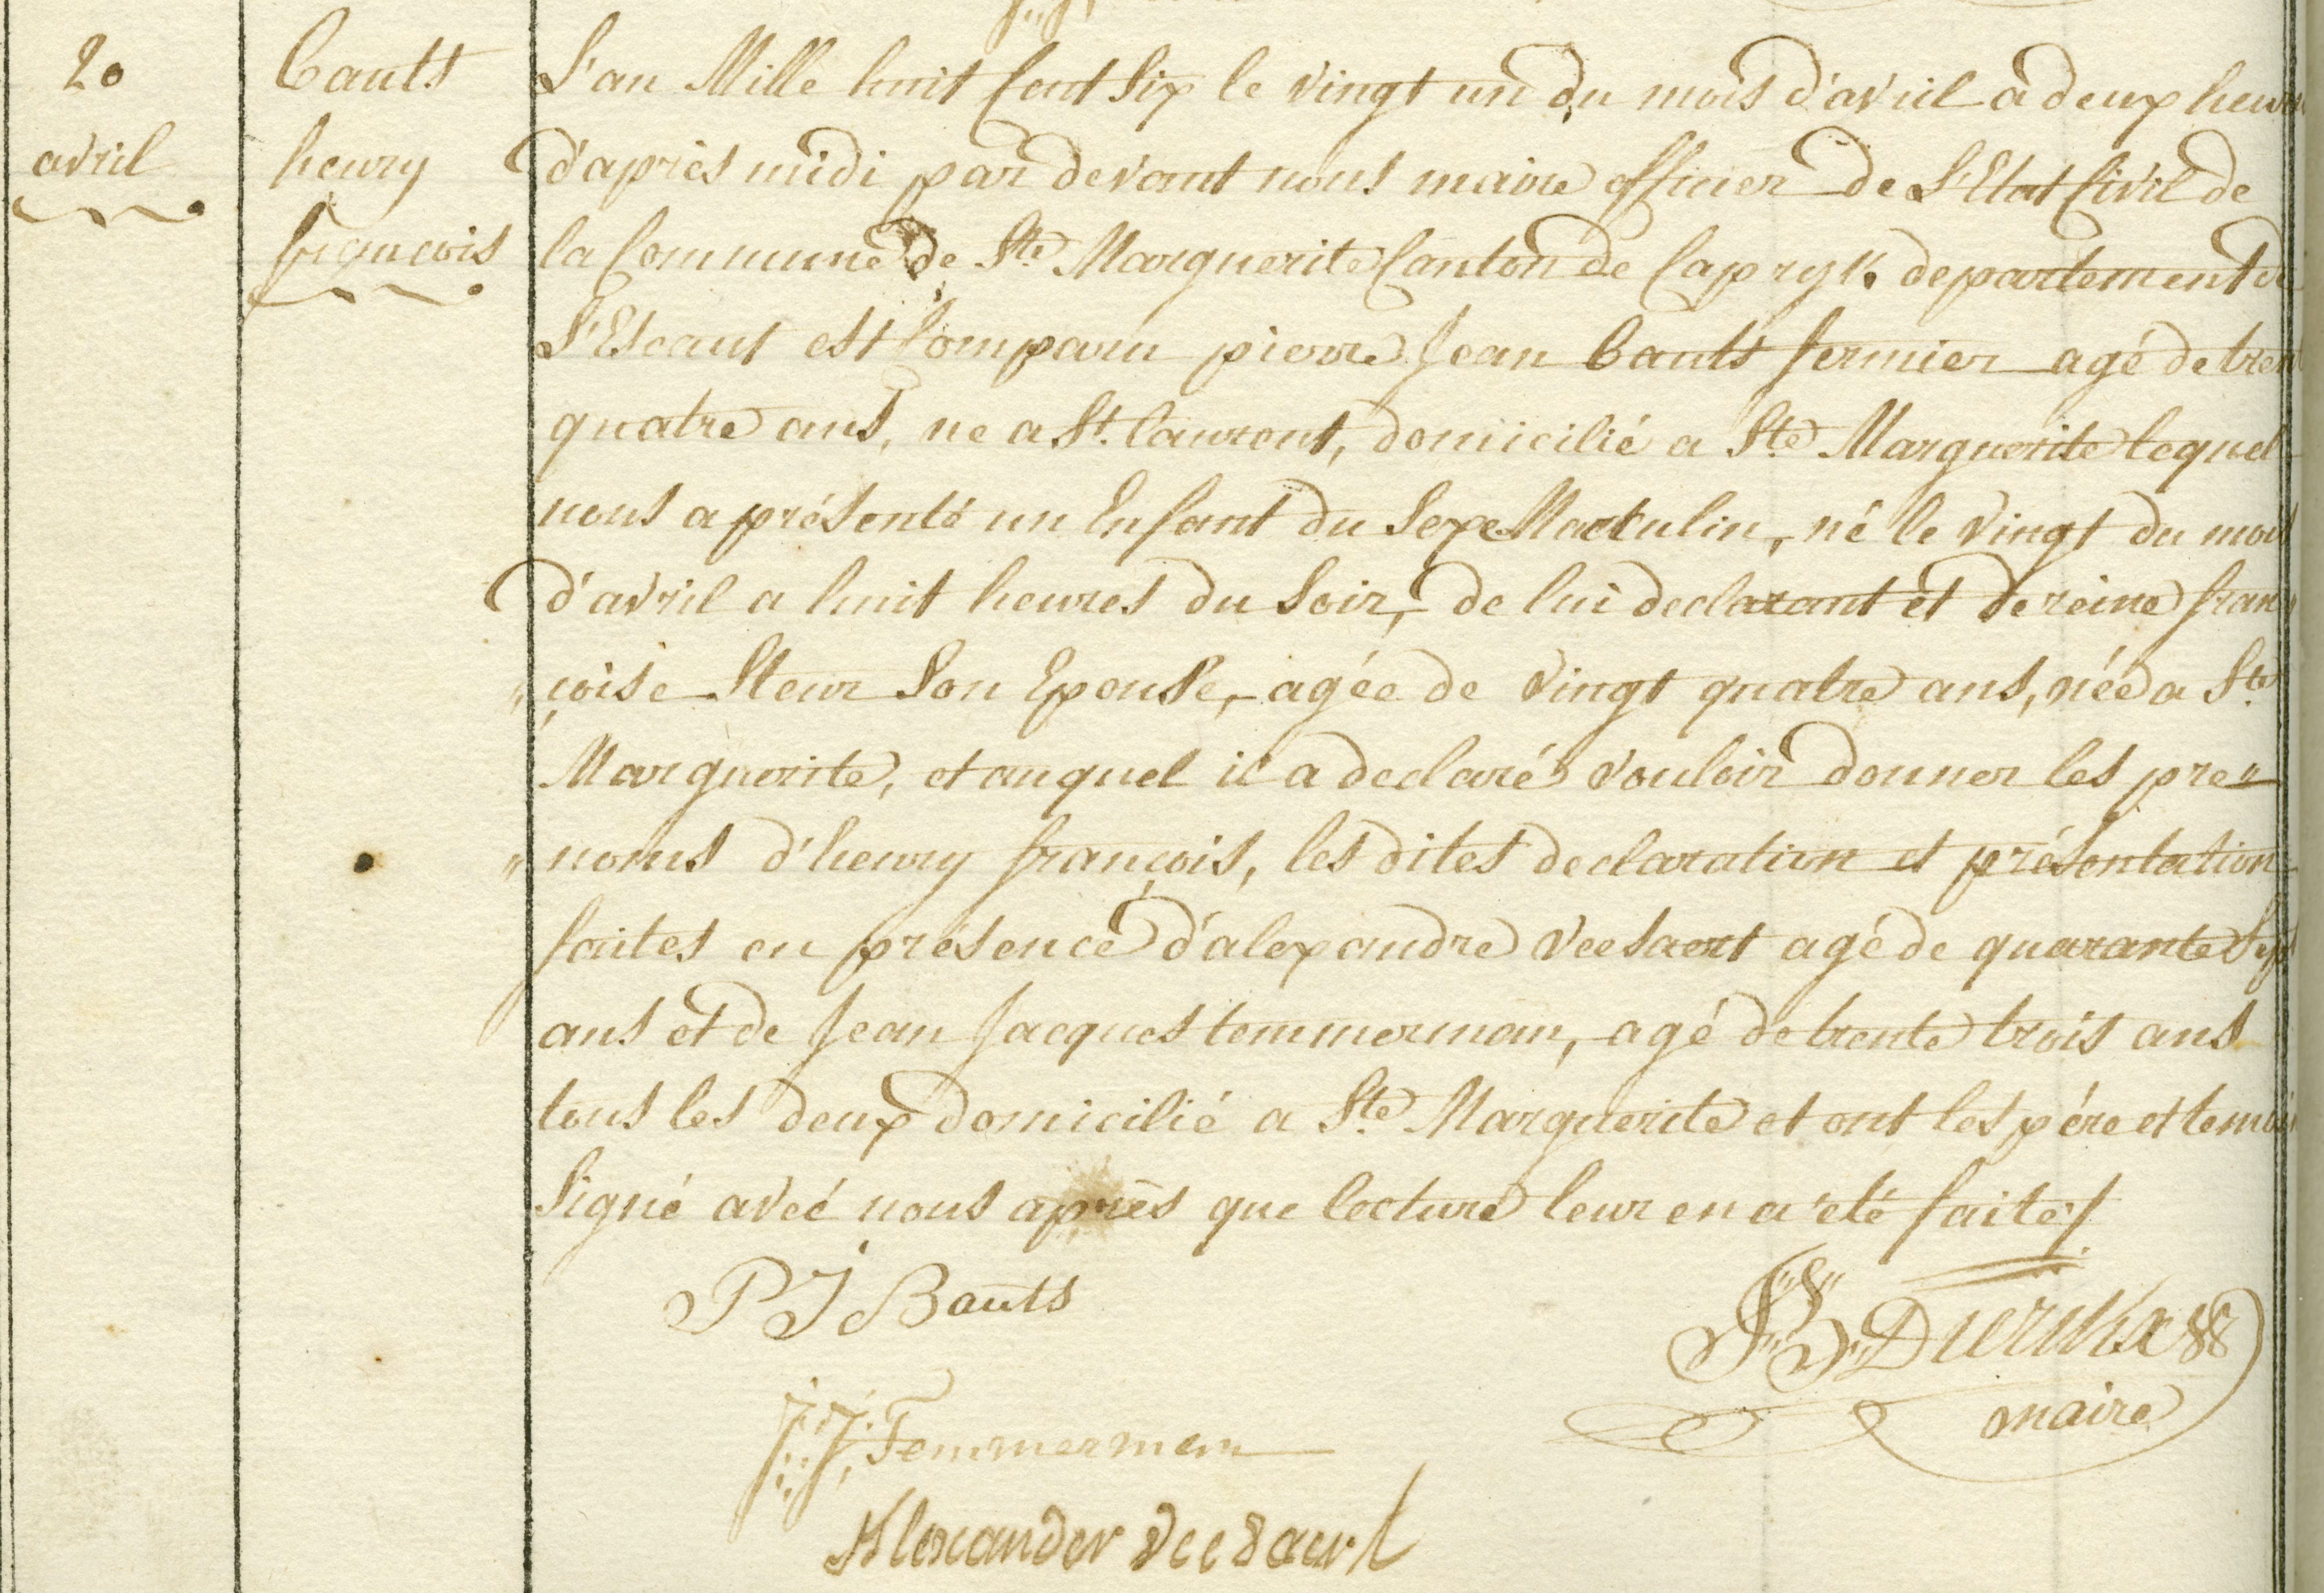 20
avril
Bauts
henry
francois
L'an Mille huit Cent Six le vingt un du mois d'avril a deux heures
d'après midi par devant nous maire officier de L'Etat Civil de
la Commune de Ste Marguerite Canton de Capryk departement de
L'Escaut est Comparu pierre Jean Bauts fermier agé de trent
quatre ans, ne a St. Laurent, domicilié a Ste Marguerite lequel
nous a présenté un Enfant du Sexe Masculin, né le vingt du mois
d'avril a huit heures du Soir, de lui declarant et de reine fran
"çoise Steur Son Epouse, agée de vingt quatre ans, née a Ste
Marguerite, et auquel il a declaré vouloir donner les pre"
"noms d'henry françois, les dites declaration et présentation
faites en présence d'alexandre veesaert agé de quarante Sept
ans et de Jean Jacques temmerman, agé de trente trois ans
tous les deux domicilié a Ste Marguerite et ont les pére et temoin
Signé avec nous après que lecture leur en a été faite /
P J Bauts
maire
J: J: Temmerman
Alexander veesaert